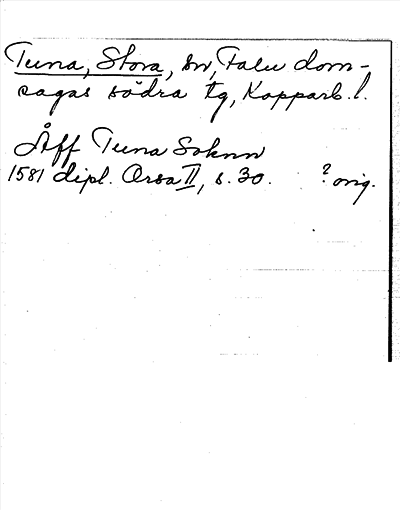 Tuna, Stora, sn, Falu dom-
sagas södra tg, Kopparb. l.
Åff Tuna Soknn
1581 dipl. Orsa II, s. 30. ? orig.